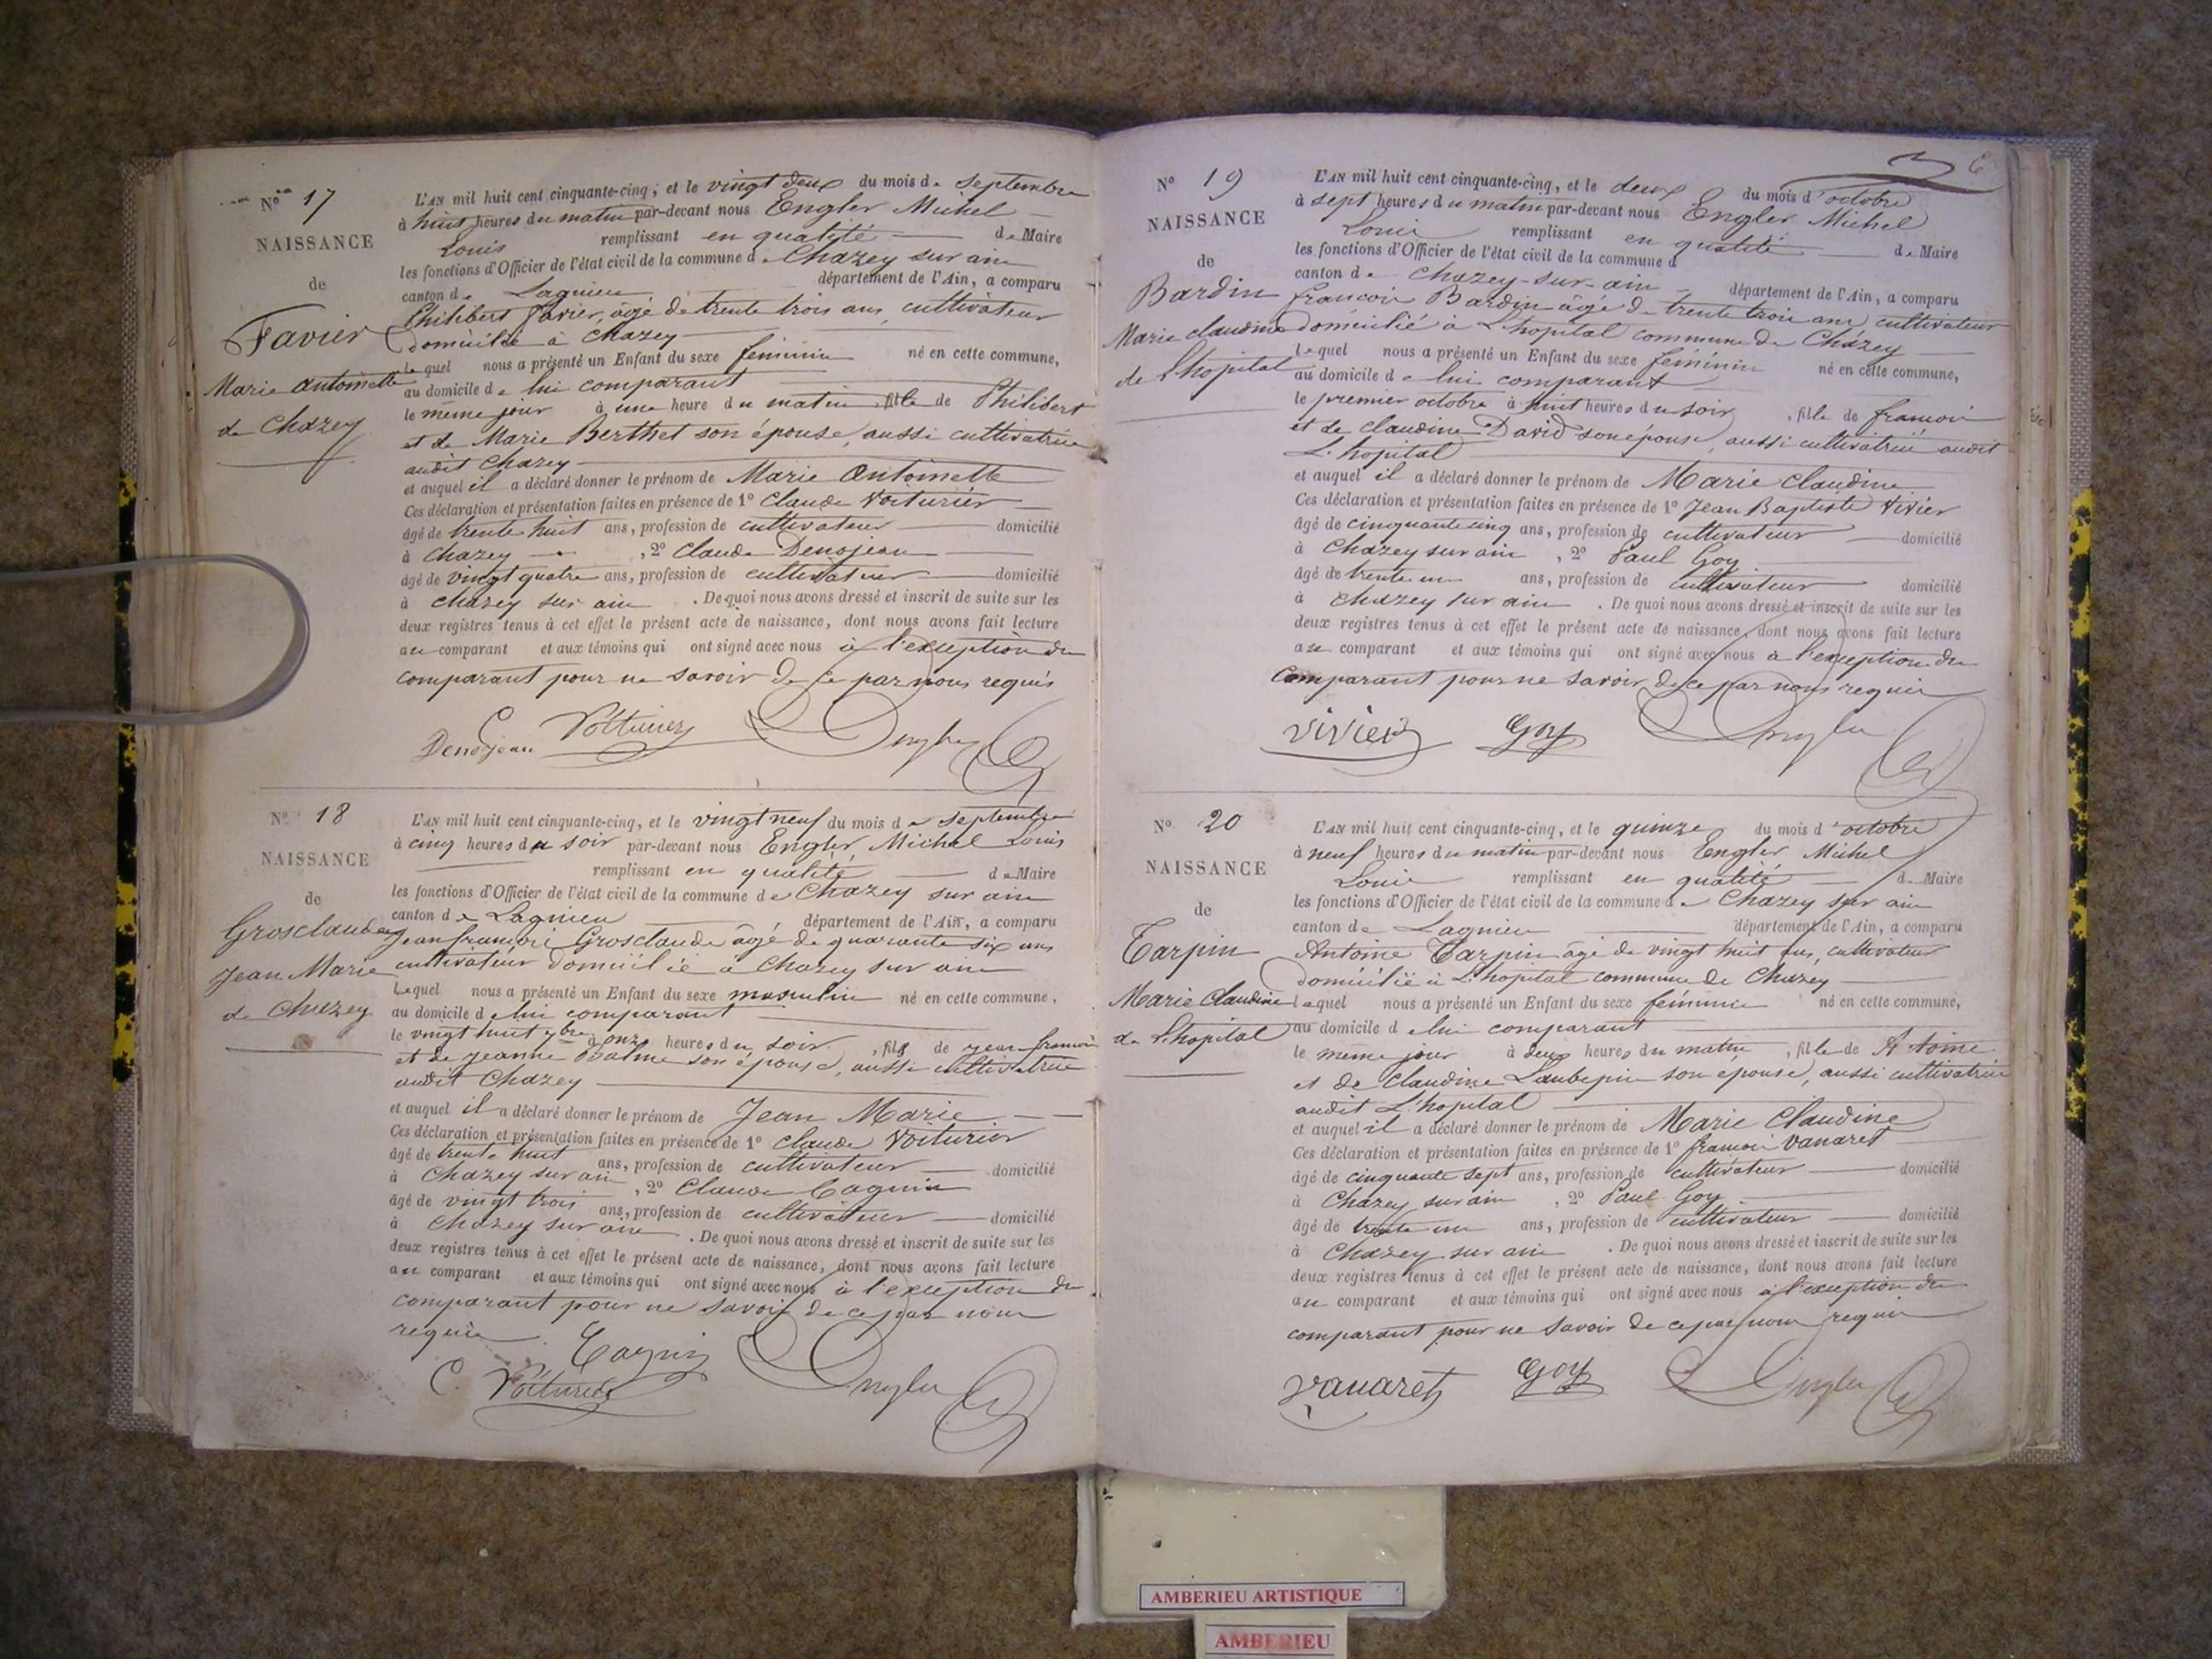 N° 17
NAISSANCE
de
Favier
Marie Antoinette
de Chazey
L'AN mil huit cent cinquante-cinq, et le vingt deux du mois de septembre
à huit heures du matin par-devant nous Engler Michel
Louis remplissant en qualité de Maire
les fonctions d'Officier de l'état civil de la commune de Chazey sur ain
canton de Lagnieu département de l'Ain, a comparu
Philibert favier, âgé de trente trois ans, cultivateur
domicilié à Chazey
lequel nous a présenté un Enfant du sexe féminin né en cette commune,
au domicile de lui comparant
le même jour à une heure du matin, fille de Philibert
et de Marie Berthet son épouse, aussi cultivatrice
audit Chazey
et auquel il a déclaré donner le prénom de Marie Antoinette
Ces déclaration et présentation faites en présence de 1° Claude Voiturier
âgé de trente huit ans, profession de cultivateur domicilié
à Chazey , 2° Claude Denojean
âgé de vingt quatre ans, profession de cultivateur domicilié
à chazey sur ain . De quoi nous avons dressé et inscrit de suite sur les
deux registres tenus à cet effet le présent acte de naissance, dont nous avons fait lecture
au comparant et aux témoins qui ont signé avec nous à l'exception du
comparant pour ne savoir de ce par nous requis
Denojean C Voiturier Engler
N° 18
NAISSANCE
de
Grosclaude
Jean Marie
de Chazey
L'AN mil huit cent cinquante-cinq, et le vingt neuf du mois de septembre
à cinq heures du soir par-devant nous Engler Michel Louis
remplissant en qualité de Maire
les fonctions d'Officier de l'état civil de la commune de Chazey sur ain
canton de Lagnieu département de l'Ain, a comparu
Jean françois Grosclaude âgé de quarante six ans
cultivateur domicilié à Chazey sur ain
Lequel nous a présenté un Enfant du sexe masculin né en cette commune,
au domicile de lui comparant
le vingt huit 7bre à onze heures du soir, fils de jean françois
et de jeanne Balme son épouse, aussi cultivatrice
audit Chazey
et auquel il a déclaré donner le prénom de Jean Marie
Ces déclaration et présentation faites en présence de 1° Claude Voiturier
âgé de trente huit ans, profession de cultivateur domicilié
à Chazey sur ain , 2° Claude Cagnin
âgé de vingt trois ans, profession de cultivateur domicilié
à Chazey sur ain . De quoi nous avons dressé et inscrit de suite sur les
deux registres tenus à cet effet le présent acte de naissance, dont nous avons fait lecture
au comparant et aux témoins qui ont signé avec nous à l'exception du
comparant pour ne savoir de ce par nous
requis Cagnin
C. Voiturier Engler
N° 19
NAISSANCE
de
Bardin
Marie claudine
de l'hopital
L'AN mil huit cent cinquante-cinq, et le deux du mois d'octobre
à sept heures du matin par-devant nous Engler Michel
Louis remplissant en qualité de Maire
les fonctions d'Officier de l'état civil de la commune d
canton de Chazey-sur-ain département de l'Ain, a comparu
françois Bardin âgé de trente trois ans, cultivateur
domicilié à L'hopital commune de Chazey
Lequel nous a présenté un Enfant du sexe féminin né en cette commune,
au domicile de lui comparant
le premier octobre à huit heures du soir, fille de françois
et de claudine David son épouse, aussi cultivatrice audit
L'hopital
et auquel il a déclaré donner le prénom de Marie Claudine
Ces déclaration et présentation faites en présence de 1° Jean Baptiste Vivier
âgé de cinquante cinq ans, profession de cultivateur domicilié
à Chazey sur ain , 2° Paul Goy
âgé de trente un ans, profession de cultivateur domicilié
à Chazey sur ain . De quoi nous avons dressé et inscrit de suite sur les
deux registres tenus à cet effet le présent acte de naissance, dont nous avons fait lecture
au comparant et aux témoins qui ont signé avec nous à l'exception du
Comparant pour ne savoir de ce par nous requis
Vivier Goy Engler
N° 20
NAISSANCE
de
Tarpin
Marie Claudine
de l'hopital
L'AN mil huit cent cinquante-cinq, et le quinze du mois d'octobre
à neuf heures du matin par-devant nous Engler Michel
Louis remplissant en qualité de Maire
les fonctions d'Officier de l'état civil de la commune de Chazey sur ain
canton de Lagnieu département de l'Ain, a comparu
Antoine Tarpin âgé de vingt huit ans, cultivateur
domicilié à L'hopital commune de Chazey
lequel nous a présenté un Enfant du sexe féminin né en cette commune,
au domicile de lui comparant
le même jour à deux heures du matin, fille de Antoine
et de Claudine Laubepin son épouse, aussi cultivatrice
audit L'hopital
et auquel il a déclaré donner le prénom de Marie Claudine
Ces déclaration et présentation faites en présence de 1° françois Vanaret
âgé de cinquante sept ans, profession de cultivateur domicilié
à Chazey sur ain , 2° Paul Goy
âgé de trente un ans, profession de cultivateur domicilié
à Chazey sur ain . De quoi nous avons dressé et inscrit de suite sur les
deux registres tenus à cet effet le présent acte de naissance, dont nous avons fait lecture
au comparant et aux témoins qui ont signé avec nous à l'exception du
comparant pour ne savoir de ce par nous requis
Vanaret Goy Engler
AMBERIEU ARTISTIQUE
AMBERIEU